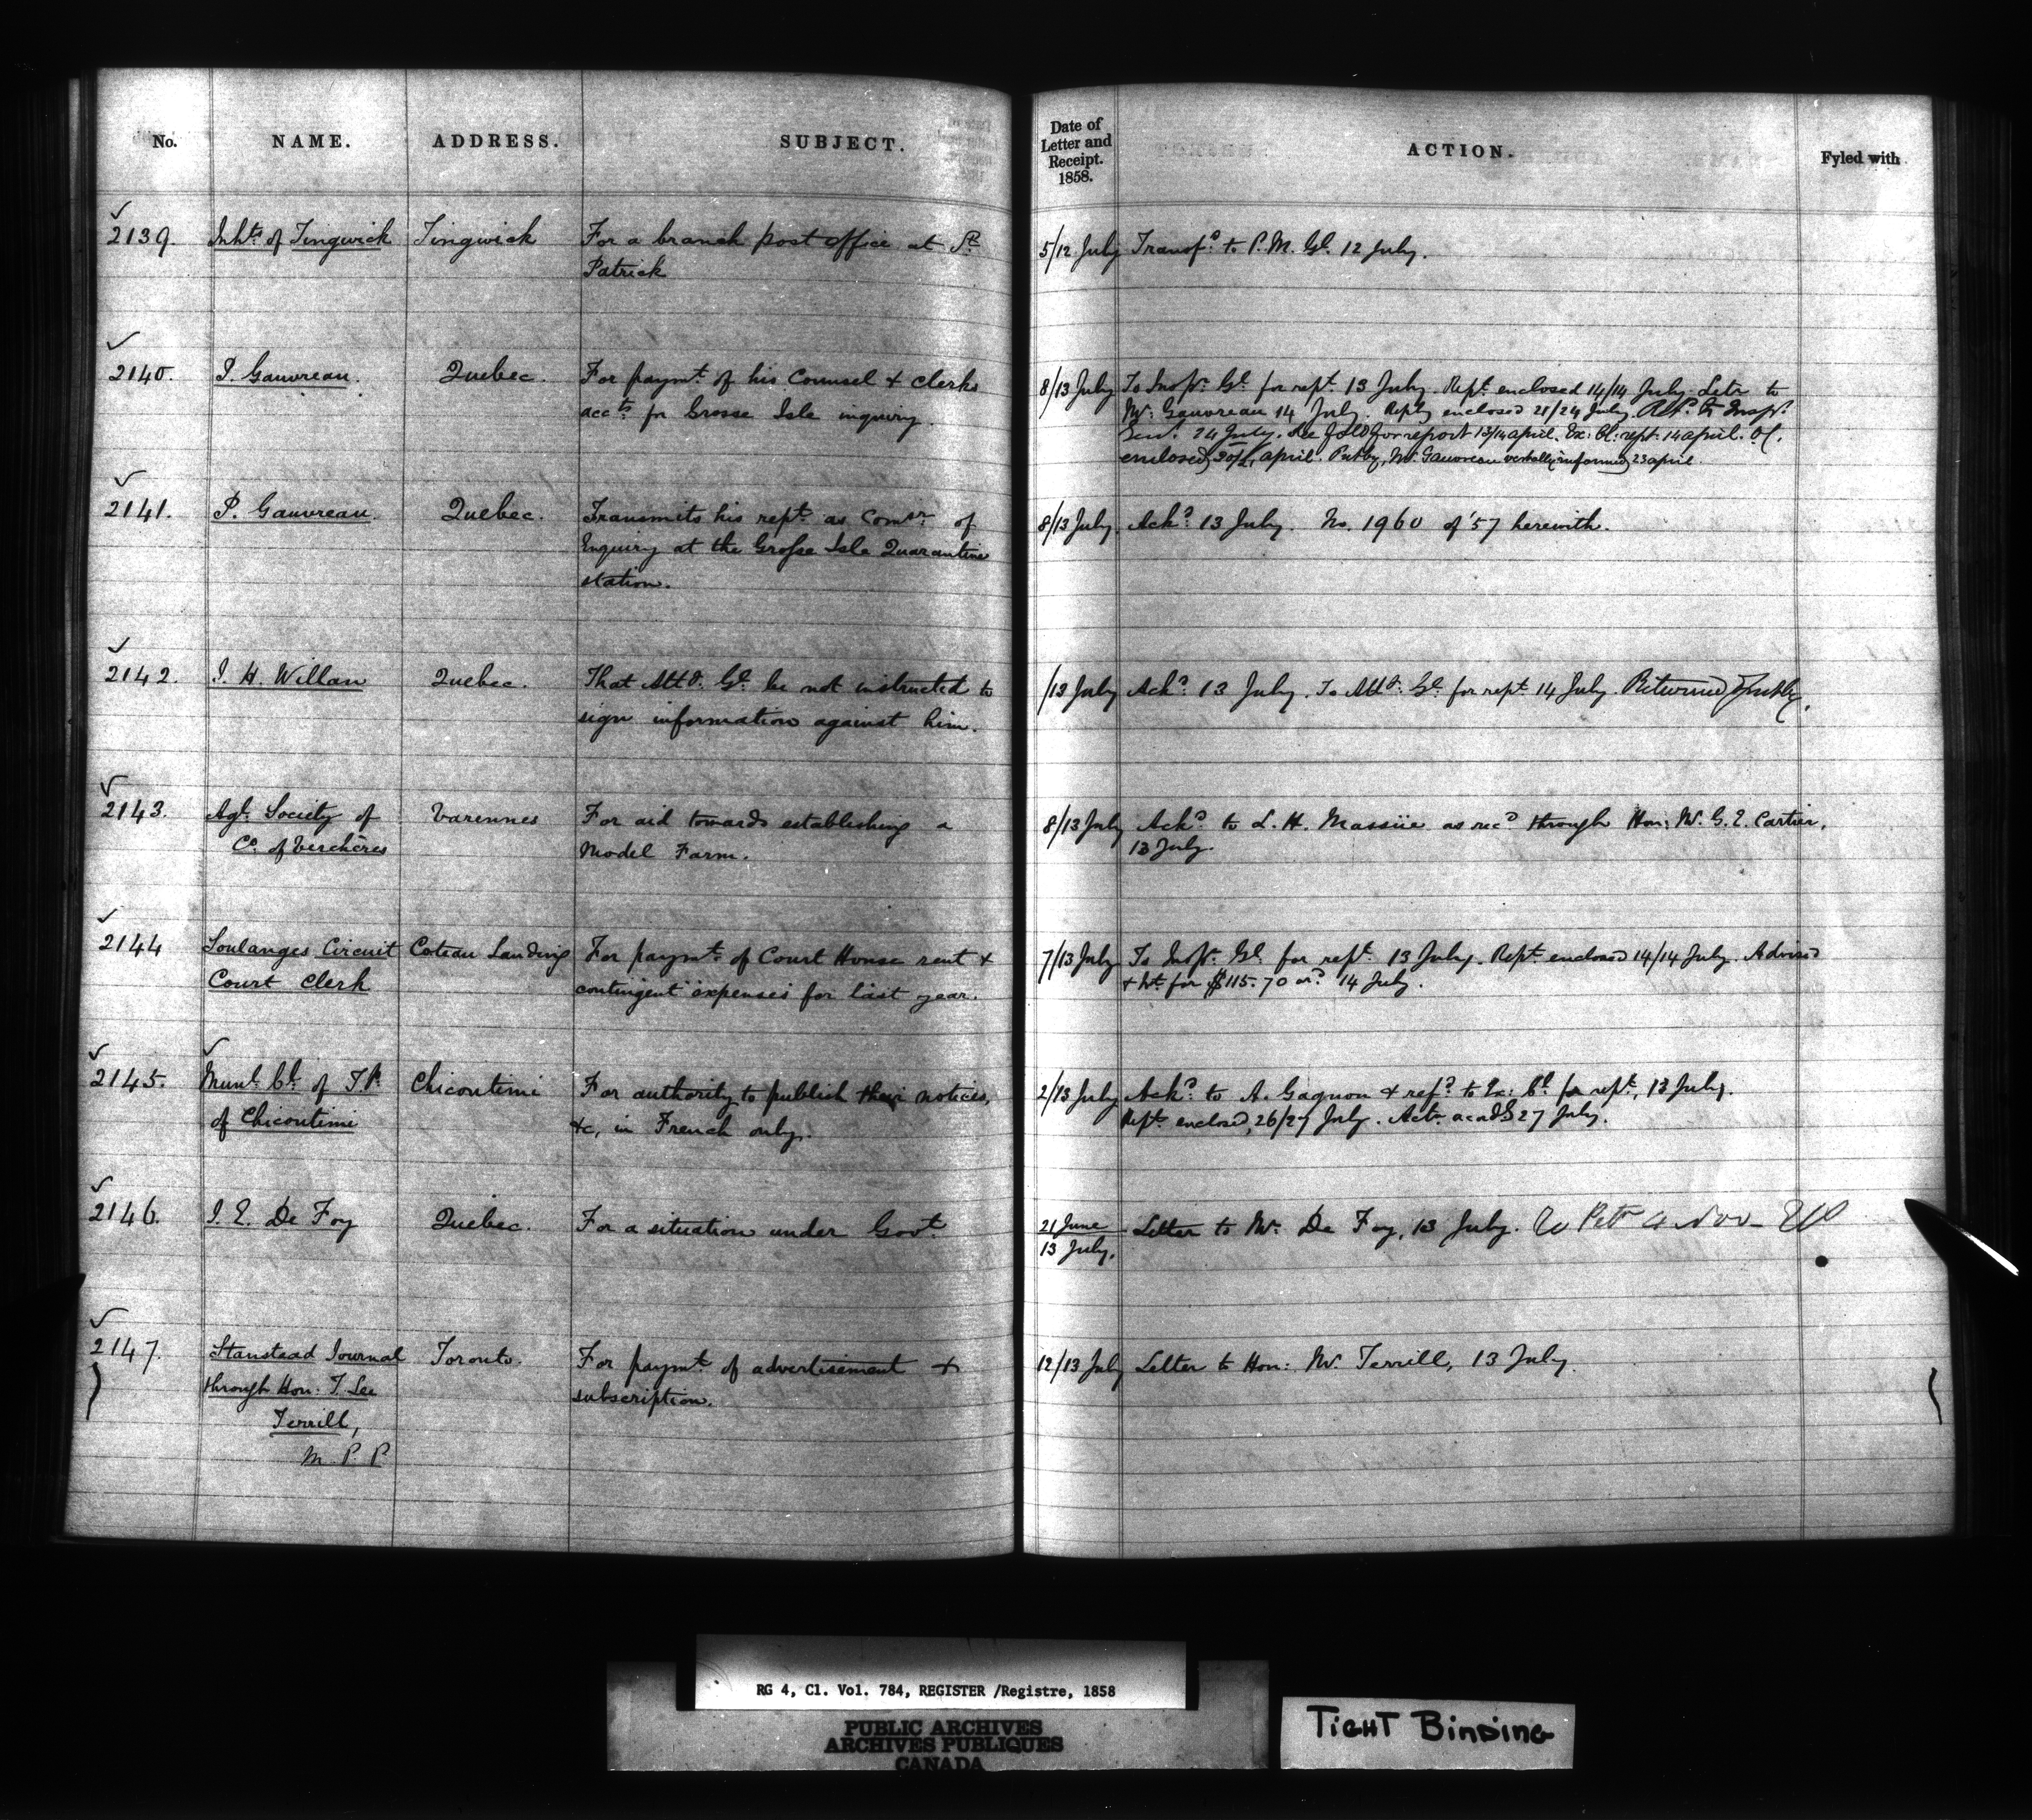 No. NAME. ADDRESS. SUBJECT. Date of Letter and Receipt. 1858. ACTION. Fyled with
2139. Inhts of Tingwick Tingwick For a branch post office at St. 5/12 July Transfd. to P. M. Gl. 12 July.
Patrick
2140. P. Gauvreau. Quebec. For paymt. of his Counsel & clerks 8/13 July To Inspr. Gl. for rept. 13 July. Rept. enclosed 14/14 July. Letr to
accts for Grosse Isle inquiry. Mr. Gauvreau 14 July. Reply enclosed 21/24 July. Refd. to Inspr.
Genl. 24 July. for report 13/14 april. Ex: Cl: rept. 14 april. O.C.
enclosed april. Mr. Gauvreau verbally informed 23 april.
2141. P. Gauvreau. Quebec. Transmits his rept. as Comsr. of 8/13 July. Ackd. 13 July. No. 1960 of '57 herewith.
Enquiry at the Grosse Isle Quarantine
station.
2142. J. H. Willan Quebec. That Atty. Gl. be not instructed to /12 July Ackd. 13 July. To Atty. Gl. for rept. 14 July. Returned
sign information against him.
2143. Agl. Society of Varennes For aid towards establishing a 8/13 July Ackd. to L. H. Massüe as recd through Hon: Mr. G. E. Cartier,
Co. of Verchères Model Farm. 13 July.
2144 Soulanges Circuit Coteau Landing For paymt. of Court House rent & 7/13 July To Inspr. Gl. for rept. 13 July. Rept. enclosed 14/14 July. Advised
Court Clerk contingent expenses for last year. & Wt. for $115.70 ord. 14 July.
2145. Munl. Cl. of T.P. Chicoutimi For authority to publish their notices, 2/13 July Ackd. to A. Gagnon & refd. to Ex: Cl. for rept., 13 July.
of Chicoutimi &c, in French only. Rept. enclosed, 26/27 July. 27 July.
2146. J. E. De Foy Quebec. For a situation under Govt. 21 June Letter to Mr. De Foy, 13 July.
13 July.
2147. Stanstead Journal Toronto. For paymt. of advertisement & 12/13 July Letter to Hon: Mr. Terrill, 13 July.
through Hon. T. Lee subscription.
Terrill,
M. P. P
RG 4, Cl. Vol. 784, REGISTER /Registre, 1858
PUBLIC ARCHIVES
ARCHIVES PUBLIQUES
CANADA
TIGHT BINDING